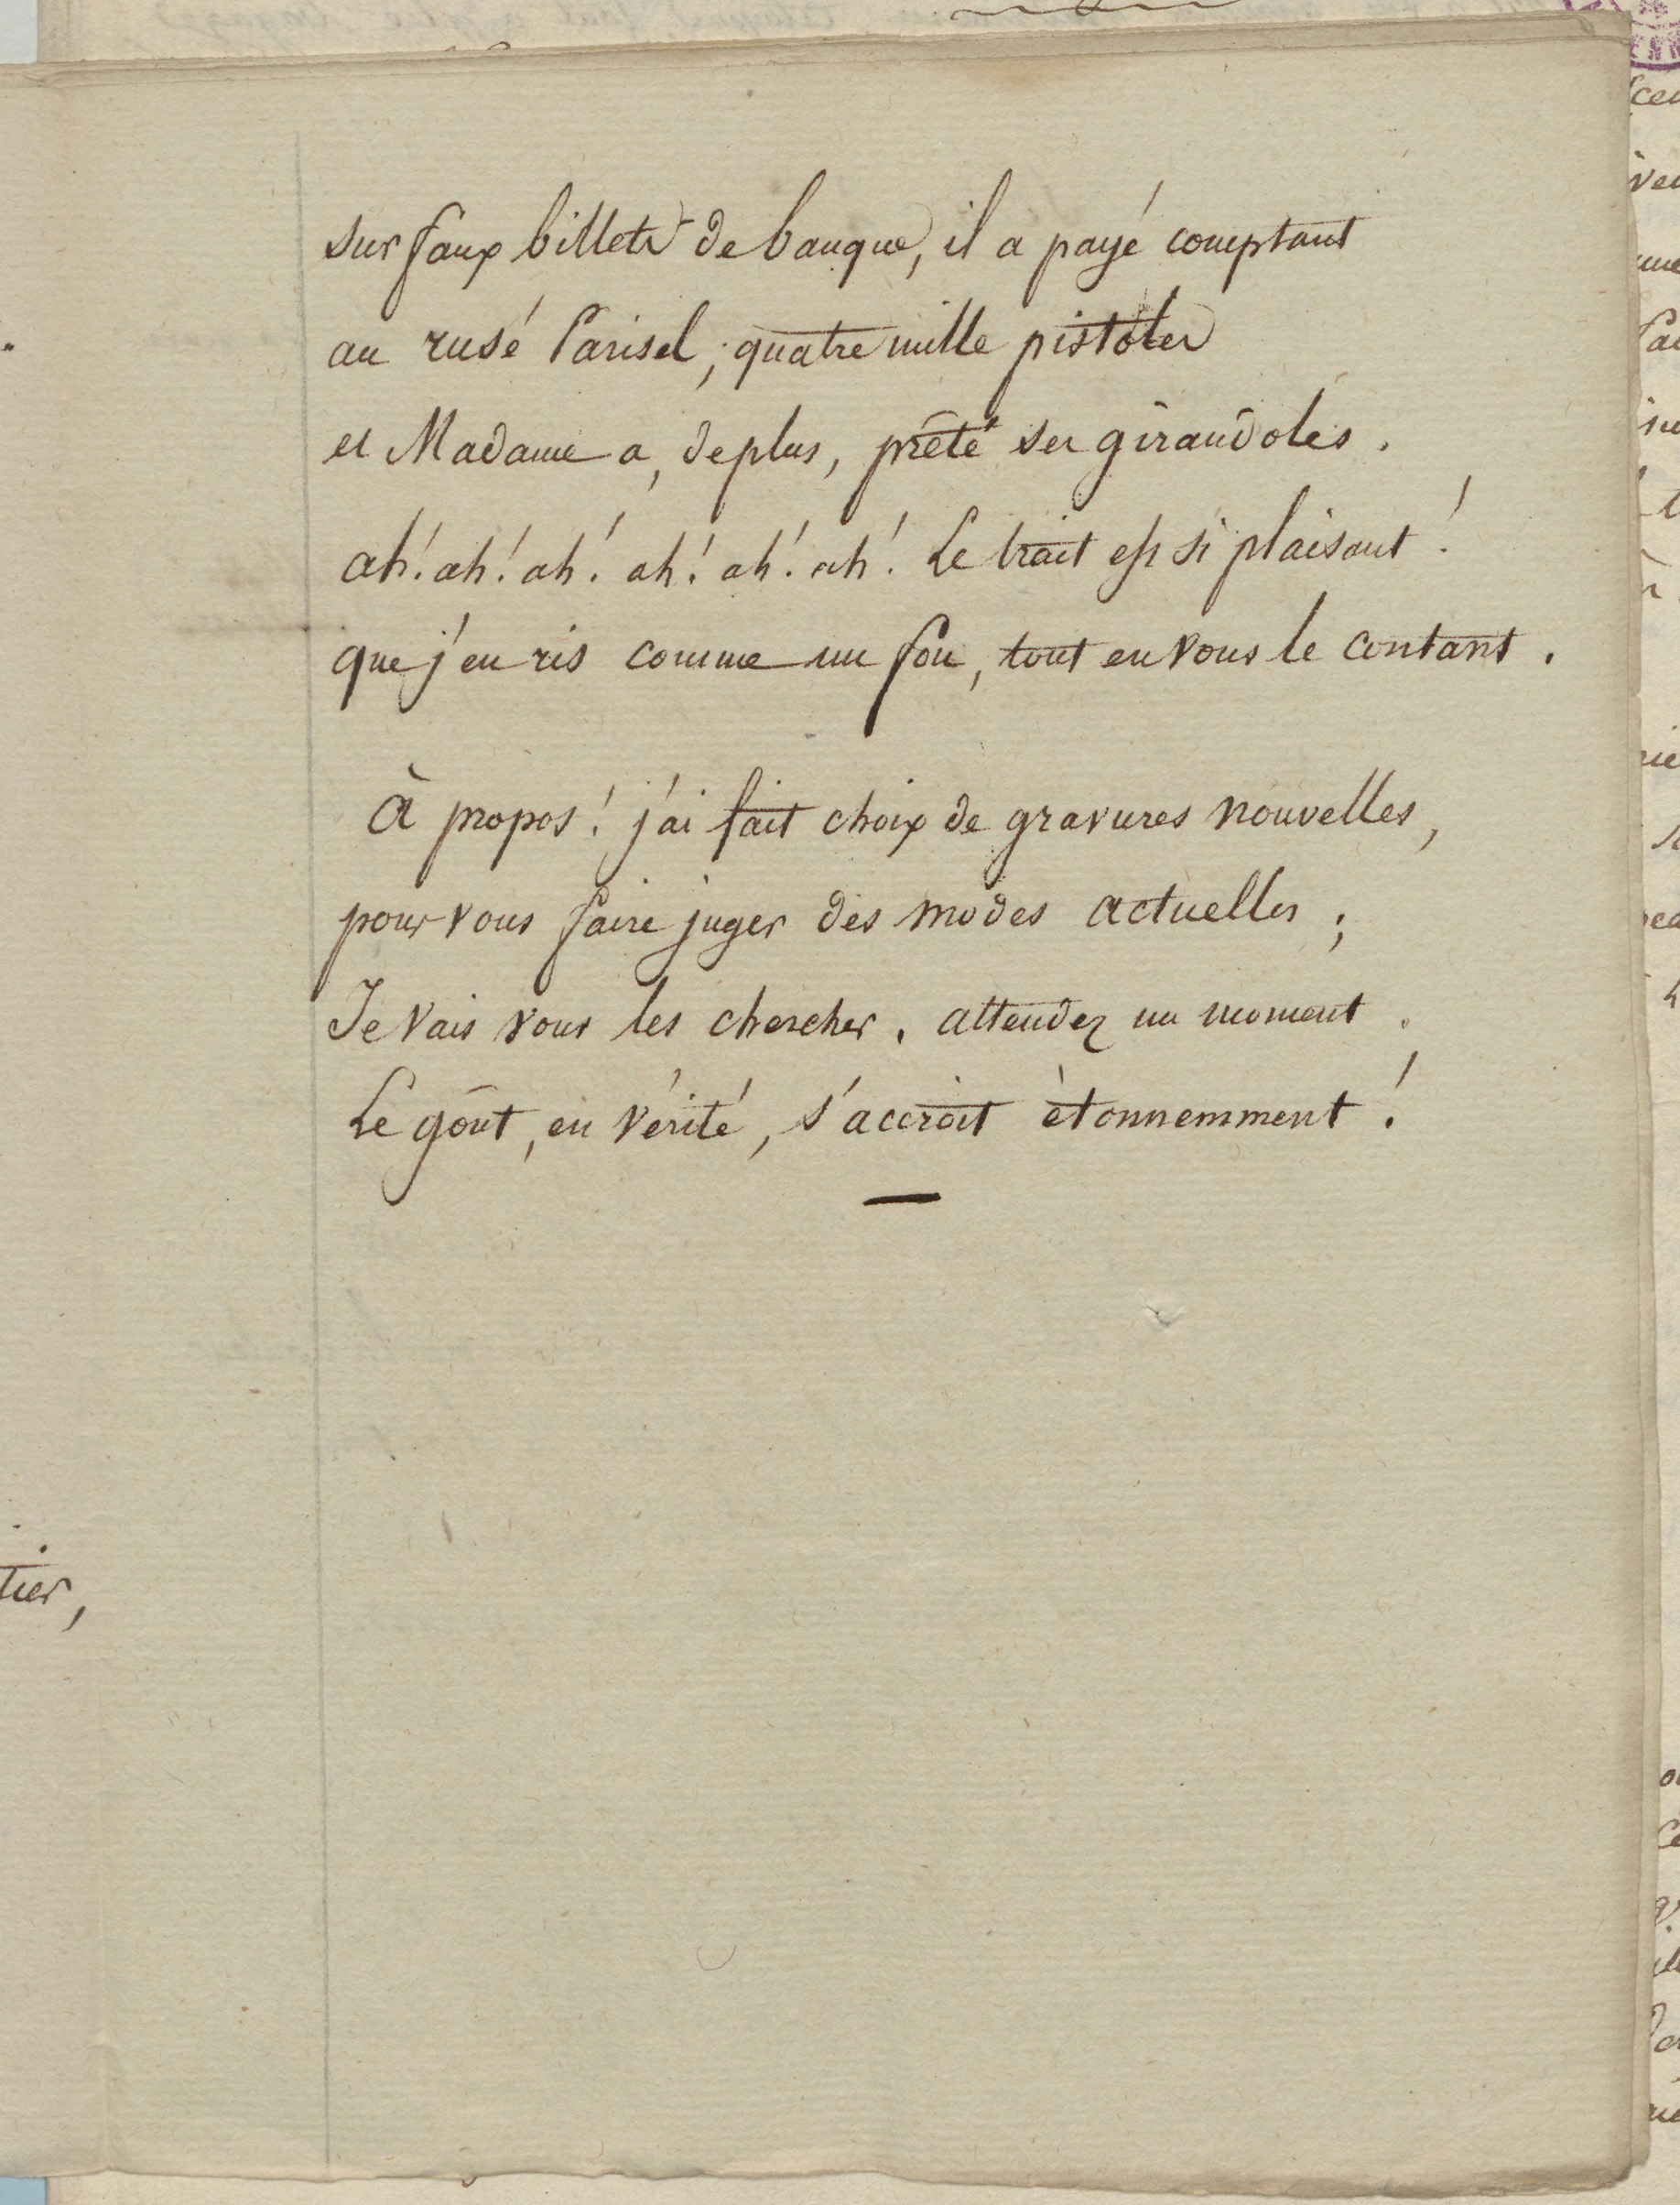 sur faux billets de banque, il a payé comptant
au rusé Parisel, quatre mille pistoles
et Madame a, de plus, prêté ses girandoles.
ah! ah! ah! ah! ah! ah! Le trait est si plaisant!
que j'en ris comme un fou, tout en vous le contant.
à propos! j'ai fait choix de gravures nouvelles,
pour vous faire juger des modes actuelles;
Je vais vous les chercher. attendez un moment.
Le goût, en vérité, s'accroît étonnemment!
tier,